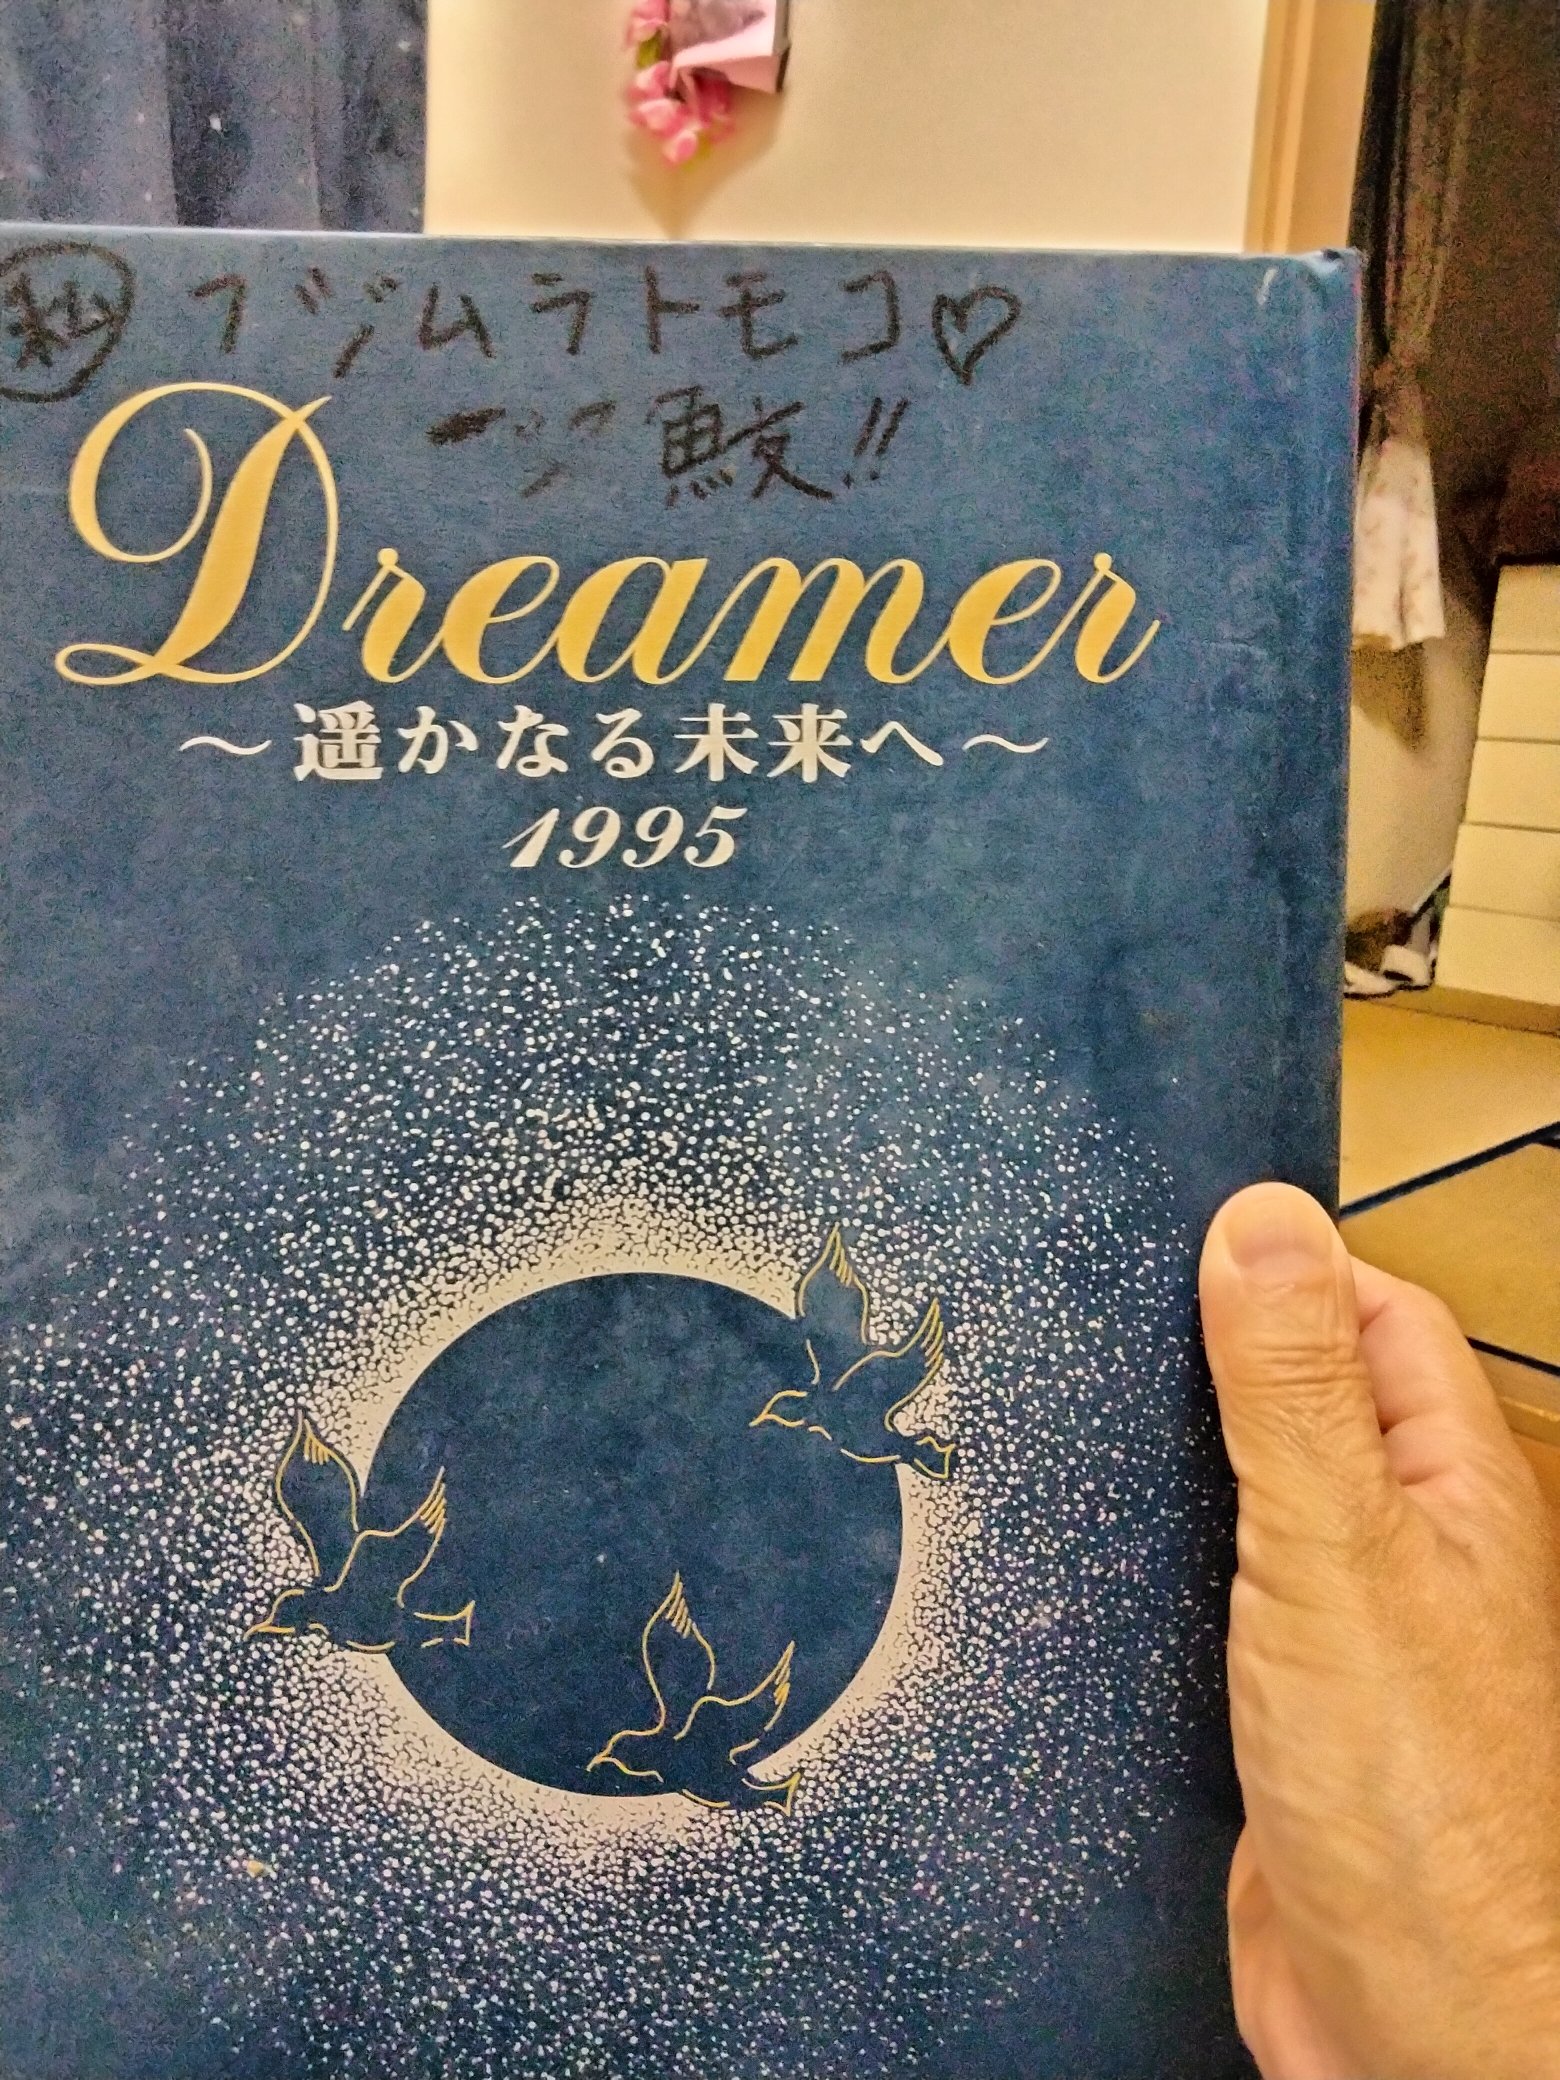 ㊙ フジムラトモコ♡
鮫!!
Dreamer
〜遥かなる未来へ〜
1995